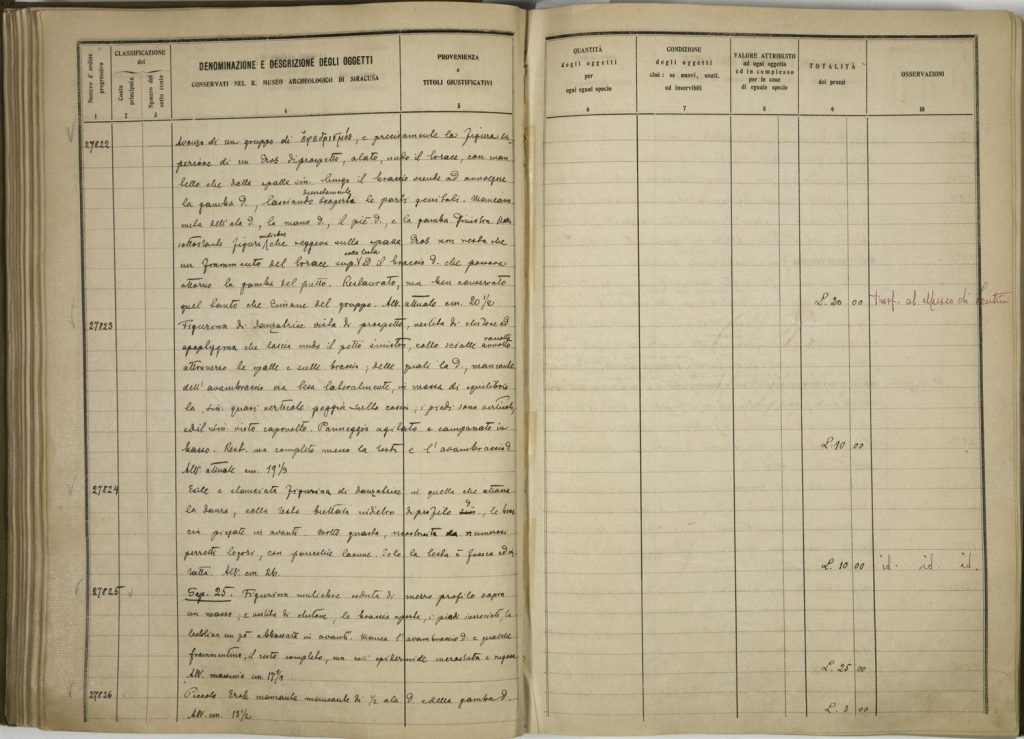 Numero d'ordine progressivo
CLASSIFICAZIONE del
Conto principale
Numero del sotto conto
DENOMINAZIONE E DESCRIZIONE DEGLI OGGETTI
CONSERVATI NEL R. MUSEO ARCHEOLOGICO DI SIRACUSA
PROVENIENZA
e
TITOLI GIUSTIFICATIVI
1 2 3 4 5
QUANTITÀ
degli oggetti
per
ogni egual specie
CONDIZIONE
degli oggetti
cioè: se nuovi, usati,
od inservibili
VALORE ATTRIBUITO
ad ogni oggetto
ed in complesso
per le cose
di eguale specie
TOTALITÀ
dei prezzi
OSSERVAZIONI
6 7 8 9 10
27822 Avanzo di un gruppo di ἐφεδρισμός, e precisamente la figura su
periore di un Eros di prospetto, alato, nudo il torace, con man
tello che dalla spalla sin. lungo il braccio scende ad avvolgere
la gamba d., lasciando discretamente scoperte le parti genitali. Mancano
metà dell'ala d., la mano d., il piè d., e la gamba sinistra. Della
sottostante figura muliebre che reggeva sulla spalla Eros non resta che
un frammento del torace sup. colla testa ed il braccio d. che passava
attorno la gamba del putto. Restaurato, ma ben conservato
quel tanto che rimane del gruppo. Alt. attuale cm. 20 1/2
L. 20 00 trasf. al Museo di Lentini
27823 Figurina di danzatrice vista di prospetto, vestita di chitone ad
apoptygma che lascia nudo il petto sinistro, collo scialle
attraverso le spalle e sulle braccia; delle quali la d., mancante
dell'avambraccio era tesa lateralmente, in mossa di equilibrio
la sin. quasi verticale poggia sulla coscia; i piedi sono verticali,
ed il sin. visto capovolto. Panneggio agitato e campanato in
basso. Rest. ma completo meno la testa e l'avambraccio d.
Alt. attuale cm. 19 1/3
L. 10 00
27824 Esile e slanciata figurina di danzatrice in quella che attacca
la danza, colla testa buttata indietro di profilo d., le brac
cia piegate in avanti. Molto guasta, ricostruita da numerosi
pezzetti logori, con parecchie lacune. Solo la testa è fresca ed in
tatta. Alt. cm. 26.
L. 10 00 id. id. id.
27825 Sep. 25. Figurina muliebre seduta di mezzo profilo sopra
un masso; è vestita di chitone, le braccia aperte, i piedi incrociati, la
testolina un pò abbassata in avanti. Manca l'avambraccio d. e qualche
frammentino, il resto completo, ma coll'epidermide incrostata e
Alt. massima cm. 17 1/2
L. 25 00
27826 Piccolo Erote mancante mancante di 1/2 ala d. e della gamba d.
Alt. cm. 13 1/2
L. 3 00